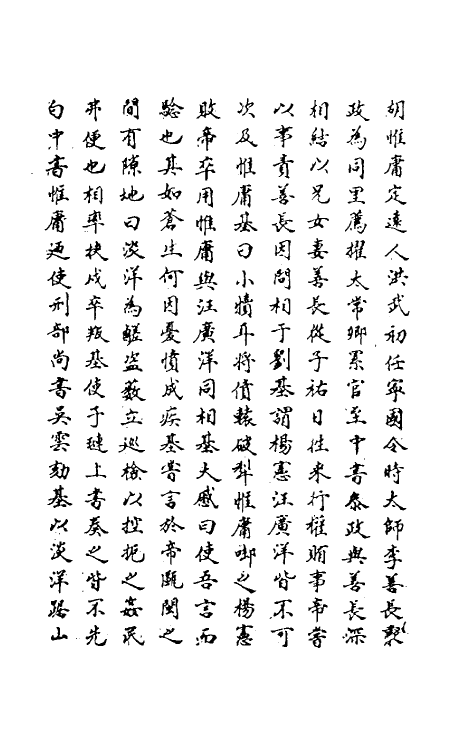 胡惟庸定遠人洪武初任寧國令時太師李善長
政為同里薦擢太常卿累官至中書參政與善長深
相結以兄女妻善長從子祐日往來行權賄事帝嘗
以事責善長因問相于劉基謂楊憲汪廣洋皆不可
次及惟庸基曰小犢耳將僨轅破犁惟庸啣之楊憲
敗帝卒用惟庸與汪廣洋同相基大慼曰使吾言而
騐也其如蒼生何因憂憤成疾基嘗言於帝甌閩之
間有隙地曰淡洋為鹺盜藪立巡檢以控扼之姦民
弗便也相率挾戍卒叛基使子璉上書奏之皆不先
白中書惟庸廼使刑部尚書吳雲劾基以淡洋踞山